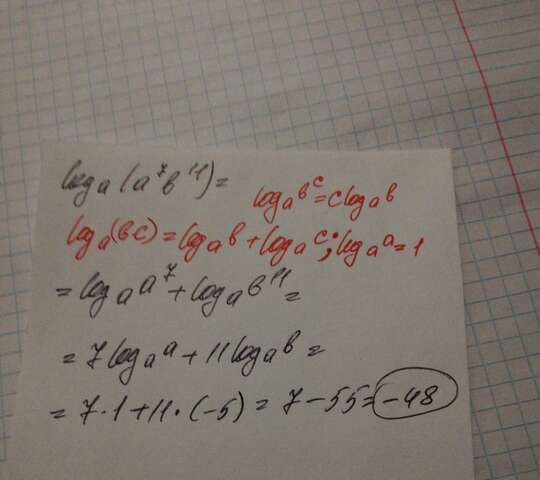 logₐ(a⁷b¹¹)=
logₐbᶜ=clogₐb
logₐ(bc)=logₐb+logₐc; logₐa=1
=logₐa⁷+logₐb¹¹=
=7logₐa+11logₐb=
=7·1+11·(-5)=7-55=-48